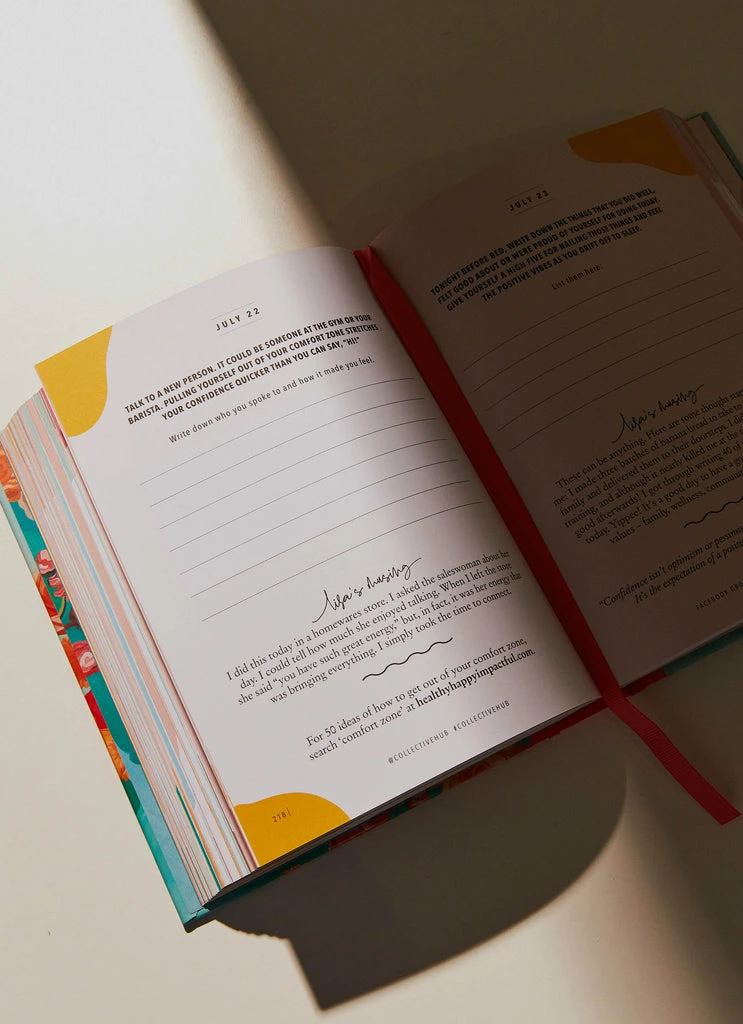 JULY 22
TALK TO A NEW PERSON. IT COULD BE SOMEONE AT THE GYM OR YOUR
BARISTA. PULLING YOURSELF OUT OF YOUR COMFORT ZONE STRETCHES
YOUR CONFIDENCE QUICKER THAN YOU CAN SAY, "HI!"
Write down who you spoke to and how it made you feel.
lisa's musing
I did this today in a homewares store. I asked the saleswoman about her
day. I could tell how much she enjoyed talking. When I left the store
she said "you have such great energy," but, in fact, it was her energy that
was bringing everything. I simply took the time to connect.
For 50 ideas of how to get out of your comfort zone,
search 'comfort zone' at healthyhappyimpactful.com.
@COLLECTIVEHUB #COLLECTIVEHUB
218 |
JULY 23
TONIGHT BEFORE BED, WRITE DOWN THE THINGS THAT YOU DID WELL,
FELT GOOD ABOUT OR WERE PROUD OF YOURSELF FOR DOING TODAY.
GIVE YOURSELF A HIGH FIVE FOR NAILING THOSE THINGS AND FEEL
THE POSITIVE VIBES AS YOU DRIFT OFF TO SLEEP.
List them here.
lisa's musing
These can be anything. Here are some thoughts
me: I made three batches of banana bread to take to
family and delivered them to their doorsteps. I did
training, and although it nearly killed me at the
good afterwards! I got through writing 40 of
today. Yippee! It's a good day to have a
values – family, wellness,
"Confidence isn't optimism or
It's the expectation of a
FACEBOOK